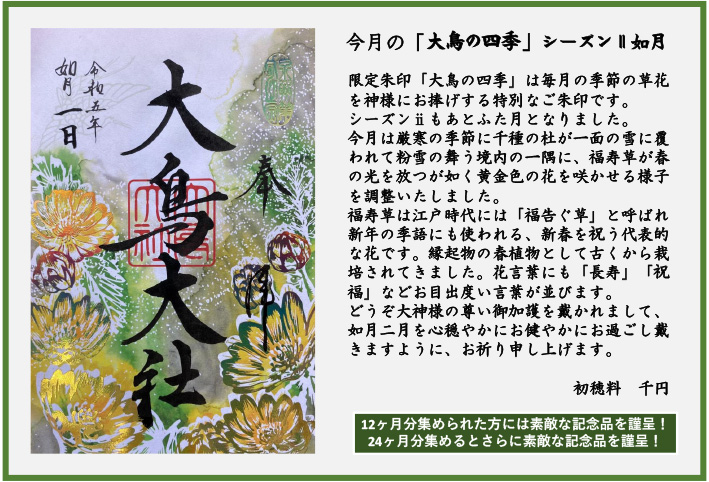 今月の「大鳥の四季」シーズンⅡ如月
限定朱印「大鳥の四季」は毎月の季節の草花
を神様にお捧げする特別なご朱印です。
シーズンⅱもあとふた月となりました。
今月は厳寒の季節に千種の杜が一面の雪に覆
われて粉雪の舞う境内の一隅に、福寿草が春
の光を放つが如く黄金色の花を咲かせる様子
を調整いたしました。
福寿草は江戸時代には「福告ぐ草」と呼ばれ
新年の季語にも使われる、新春を祝う代表的
な花です。縁起物の春植物として古くから栽
培されてきました。花言葉にも「長寿」「祝
福」などお目出度い言葉が並びます。
どうぞ大神様の尊い御加護を戴かれまして、
如月二月を心穏やかにお健やかにお過ごし戴
きますように、お祈り申し上げます。
初穂料 千円
12ヶ月分集められた方には素敵な記念品を謹呈！
24ヶ月分集めるとさらに素敵な記念品を謹呈！
奉拝
大鳥大社
令和五年
如月一日